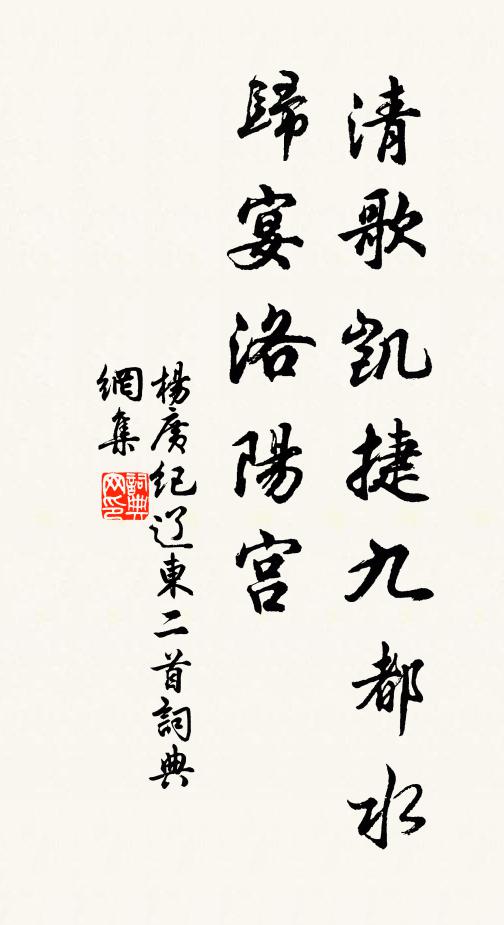 清歌凱捷九都水
歸宴洛陽宮
楊廣紀辽東二首詞典
網集
詞典
网印